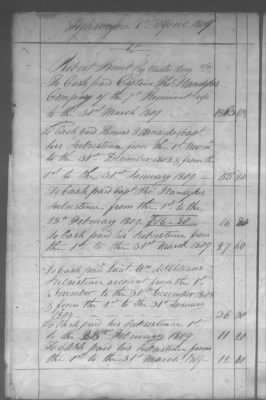 6th April 1809
Robert Brent Pay Master Army US
To Cash paid Captain Tho Vandyke
Company of the 7th Regiment
to the 31st March 1809
To Cash paid Thomas J Vandyke Capt
his Subsistence from the 1st Novem
to the 31st December 1808 & from the
1st to the 31st January 1809 55 20
To Cash paid Capt Tho Vandyke
Subsistence from the 1st to the
28th February 1809 $16-80 16 80
To Cash paid his Subsistence from
the 1st to the 31st March 1809 27 60
To Cash paid Lieut Wm McClellan
Subsistence account from the 1st
November to the 31st December 1808
& from the 1st to the 31st January
1809 36 80
To Cash paid his Subsistence 1st
to the 28th February 1809 11 20
To Cash paid his Subsistence from
the 1st to the 31st March 1809 12 40